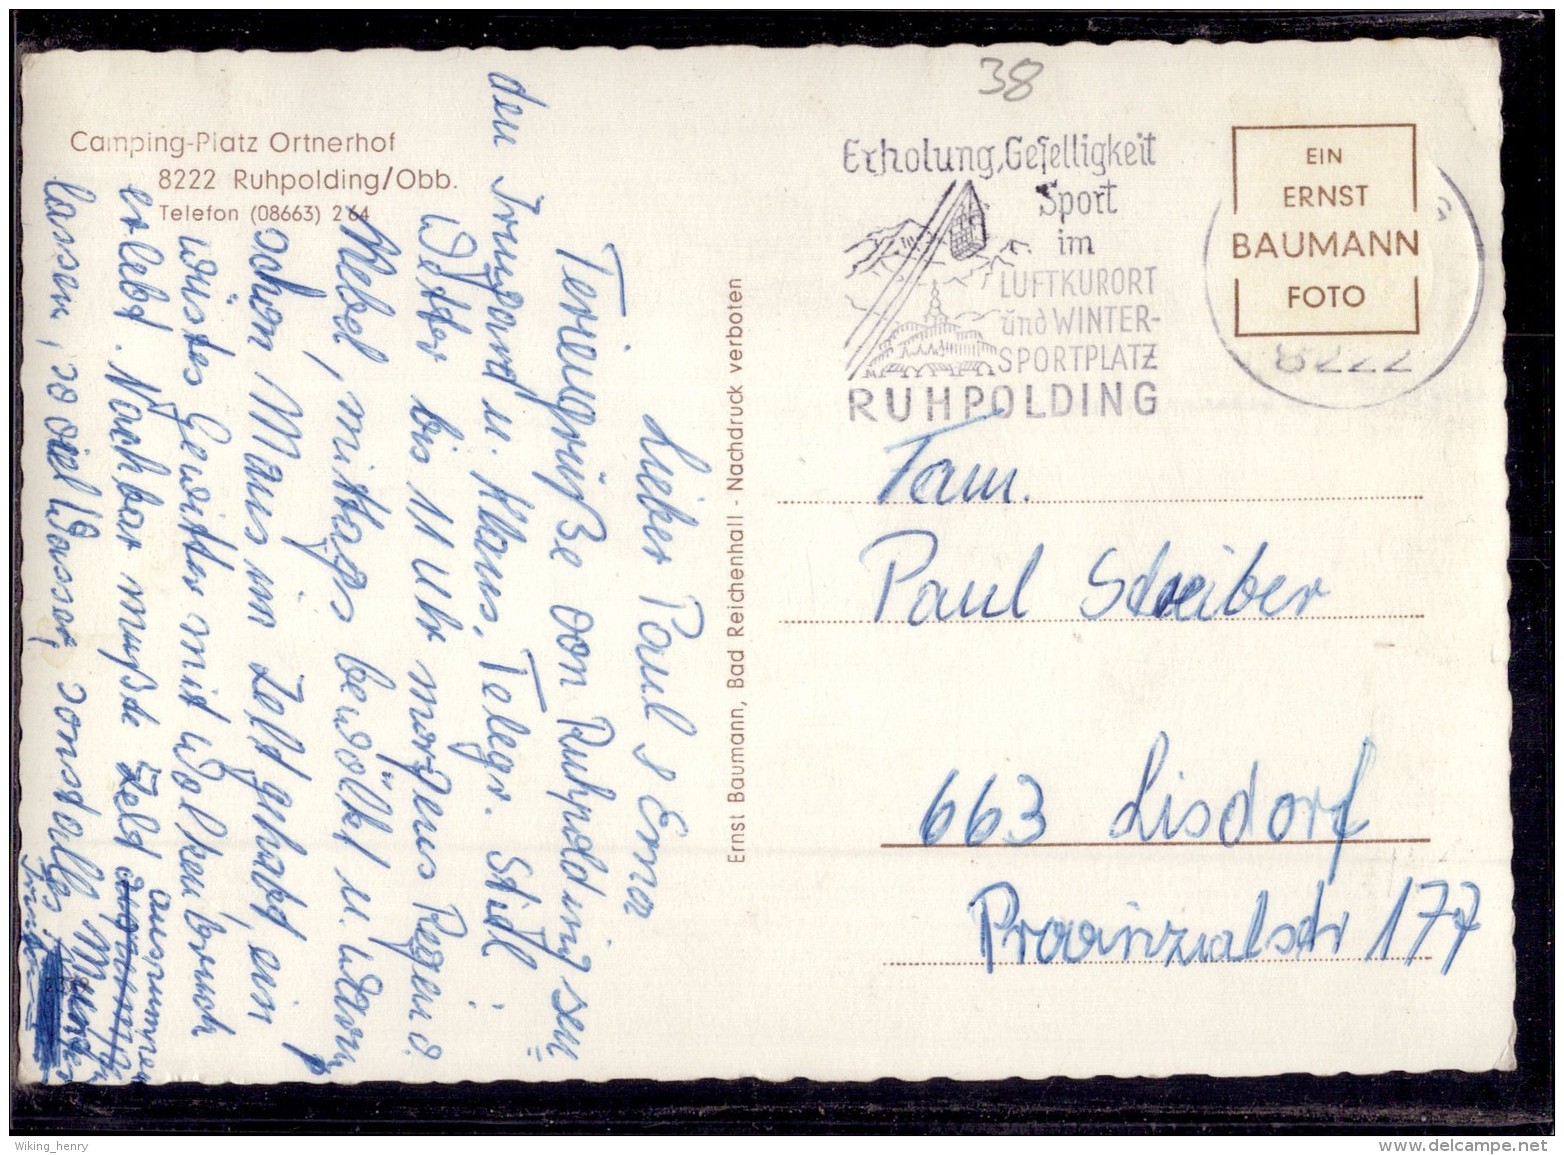 38
Camping-Platz Ortnerhof
8222 Ruhpolding/Obb.
Telefon (08663) 264
Erholung, Geselligkeit
Sport
im
LUFTKURORT
und WINTER-
SPORTPLATZ
RUHPOLDING
8222
EIN
ERNST
BAUMANN
FOTO
Lieber Paul & Erna
Feriengrüße von Ruhpolding sen=
den Irmgard u. Klaus, Telegr. Stil
Wetter bis 11 Uhr morgens Regen u.
Nebel, mittags bewölkt u. warm
schon Maus im Zelt gehabt, ein
wüstes Gewitter mit Wolkenbruch
erlebt. Nachbar mußte Zelt
auspumpen
lassen, soviel Wasser, sonst alles Munter
Ernst Baumann, Bad Reichenhall - Nachdruck verboten
Fam.
Paul Schreiber
663 Lisdorf
Provinzialstr 177
Wiking_henry
www.delcampe.net